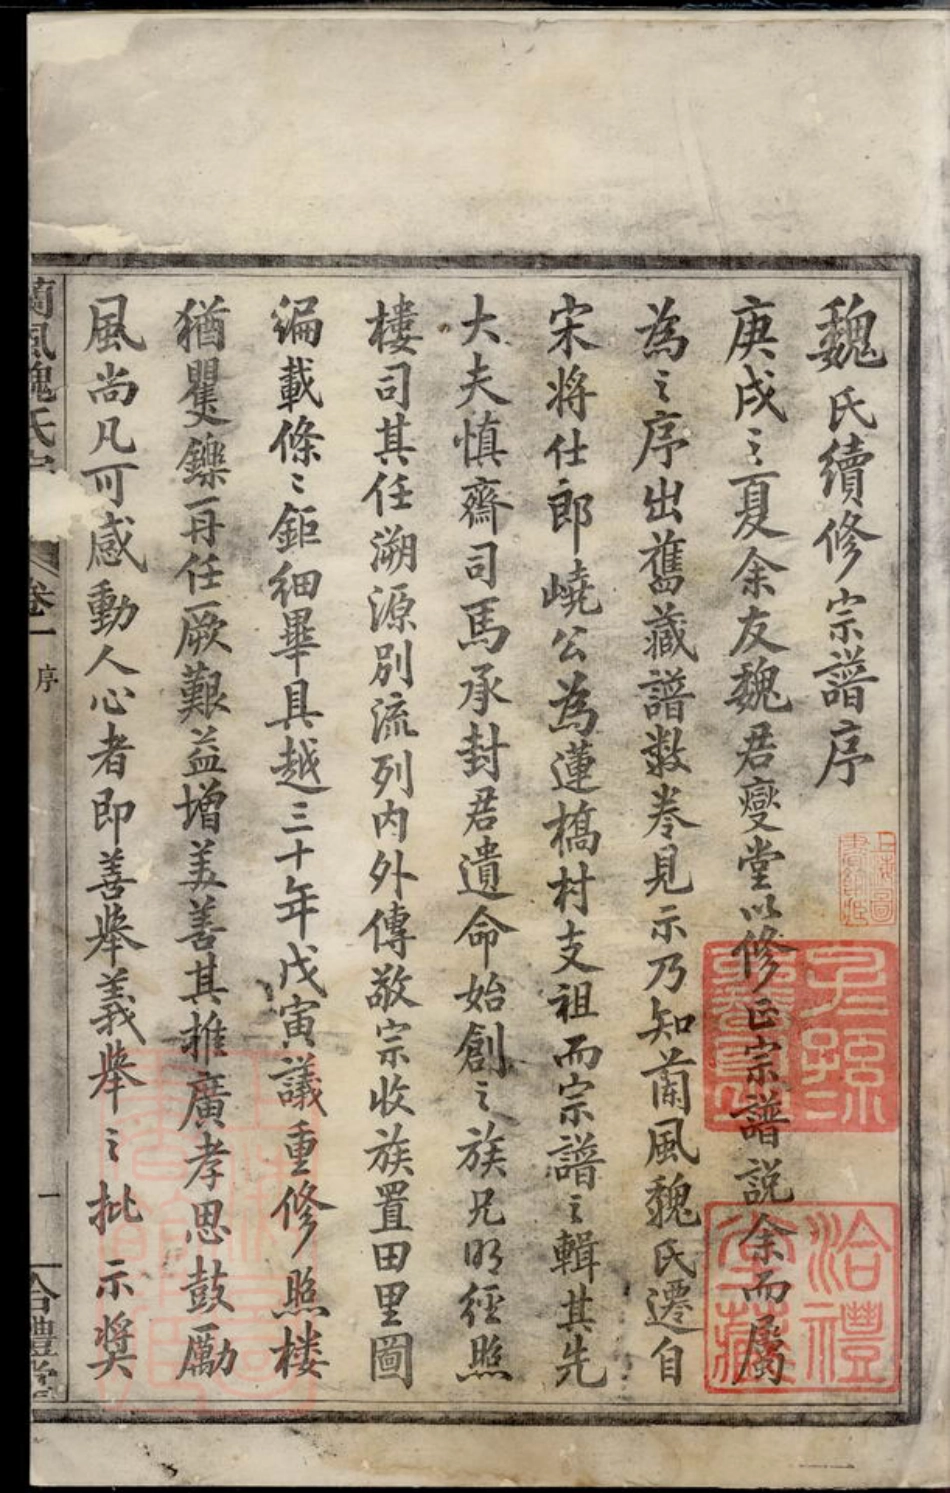 魏氏續修宗譜序
庚戌之夏余友魏君燮堂以修正宗譜説余而屬
為之序出舊藏譜数卷見示乃知蘭風魏氏遷自
宋将仕郎嶢公為蓮橋村支祖而宗譜之輯其先
大夫慎齋司馬承封君遺命始創之族兄明經照
樓司其任溯源別流列内外傳敬宗收族置田里圖
编載條〻鉅細畢具越三十年戊寅議重修照楼
猶矍鑠再任厥艱益增美善其推廣孝思鼓勵
風尚凡可感動人心者即善舉義舉之批示奨
蘭風魏氏宗
卷一
序
一
合禮堂
子孫
洽禮
堂藏